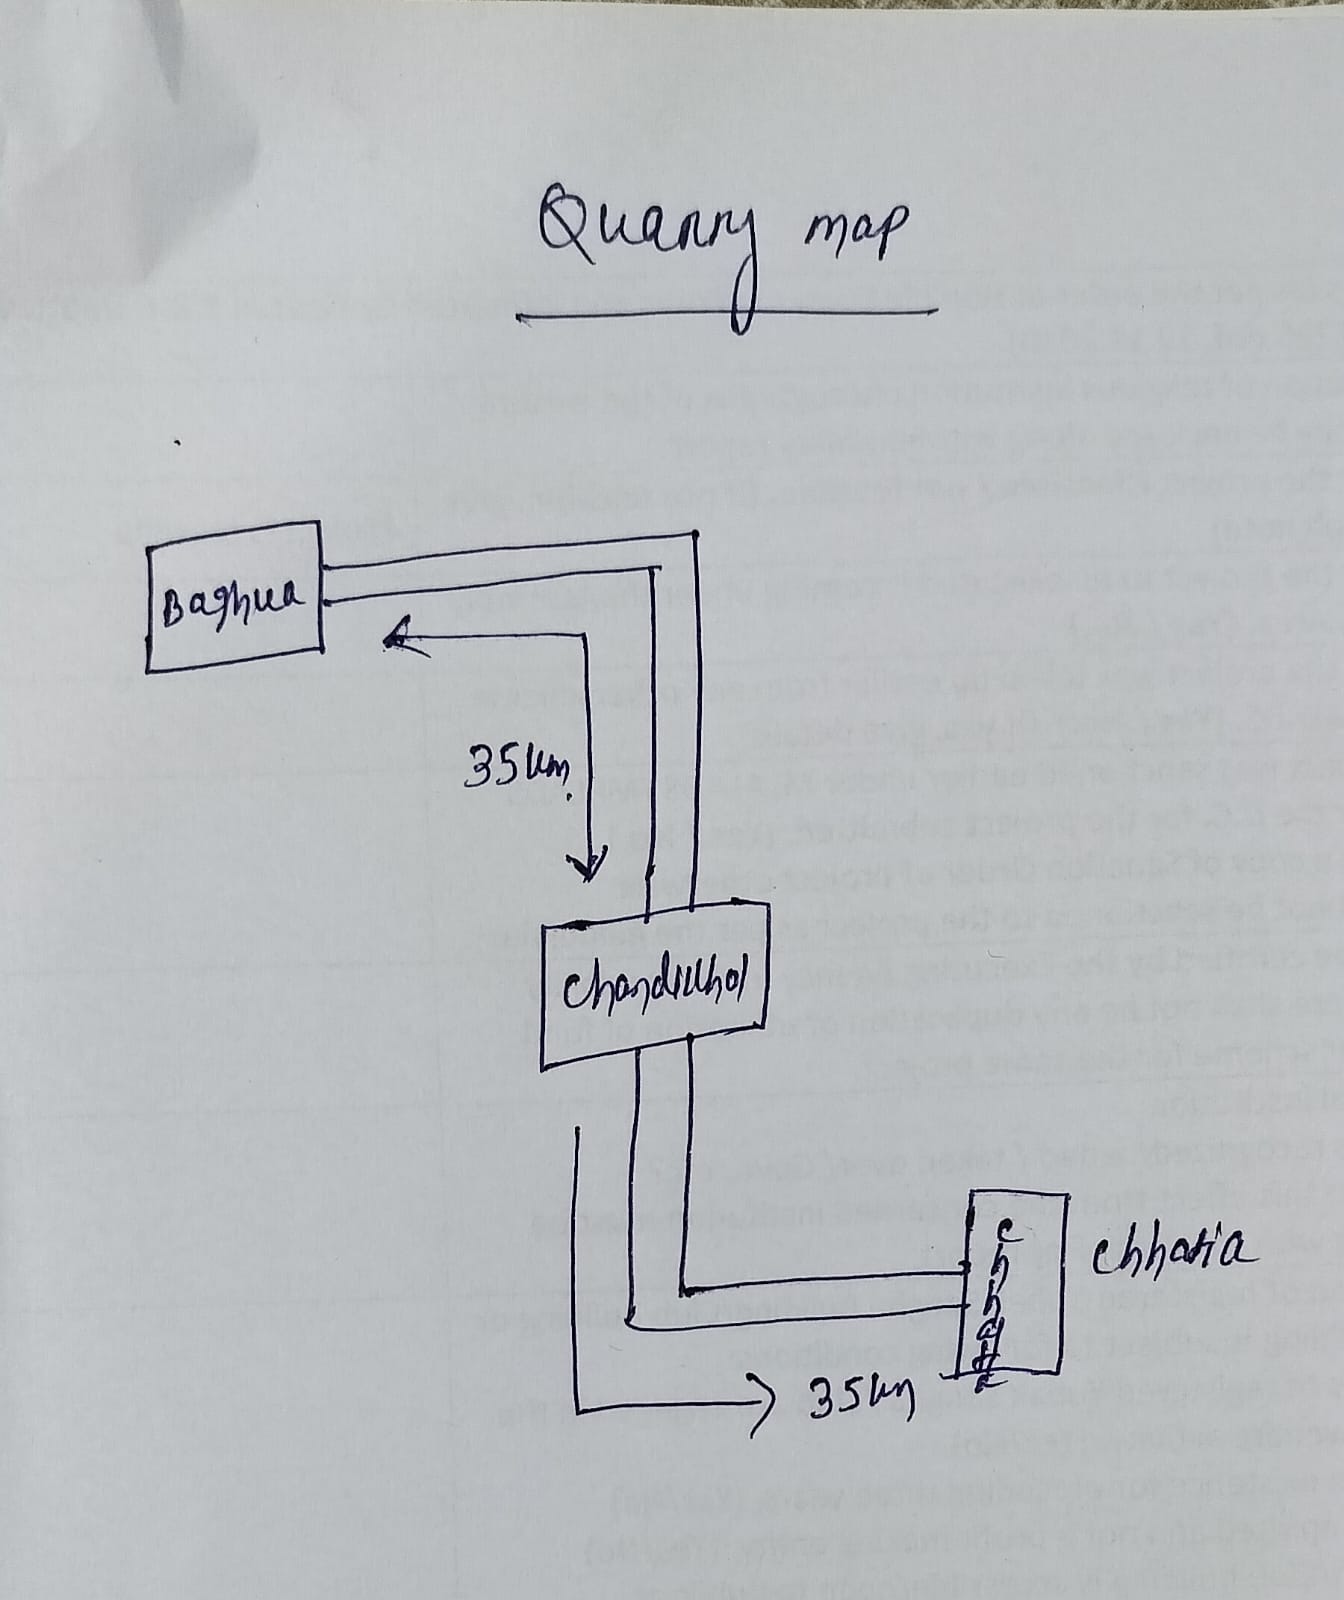 Quarry map
Baghua
35 km.
Chandikhol
chhatia
chhatia
35 km